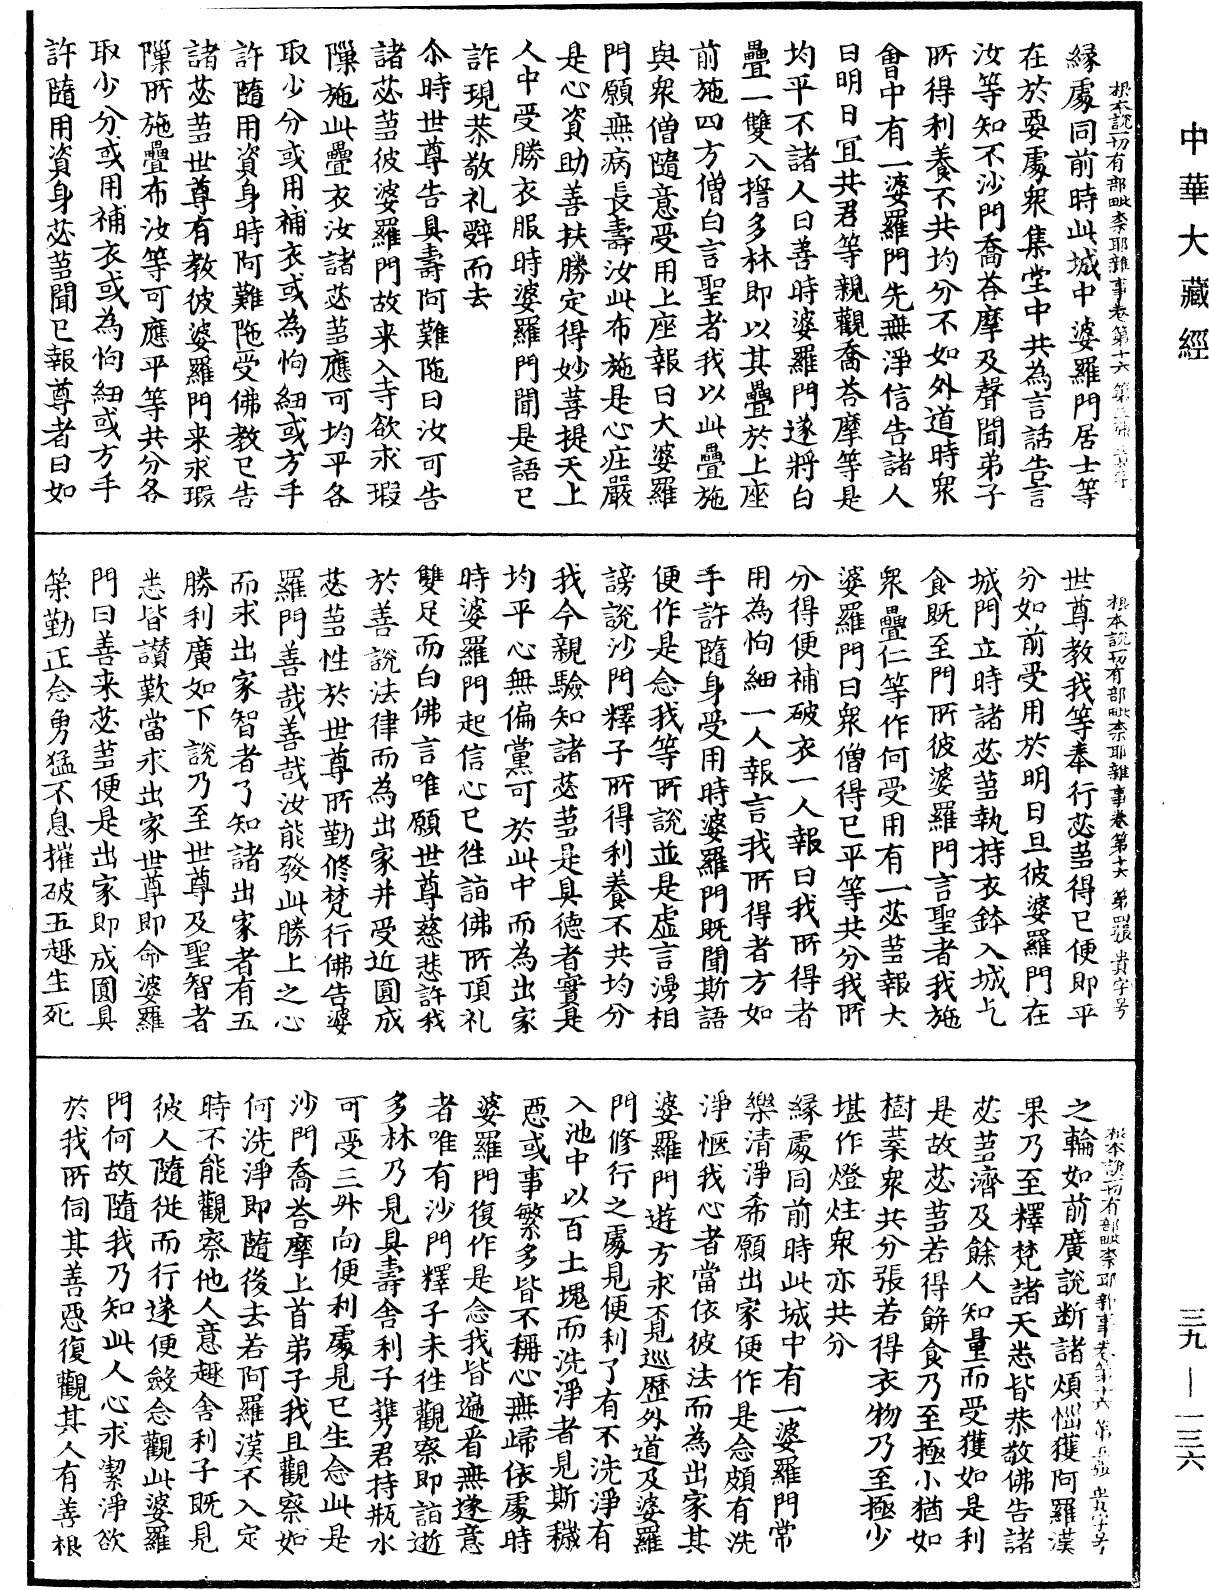 中華大藏經
根本說一切有部毗奈耶雜事卷第十六 第三張 貴字号
緣處同前時此城中婆羅門居士等
在於要處衆集堂中共為言話告言
汝等知不沙門喬荅摩及聲聞弟子
所得利養不共均分不如外道時衆
會中有一婆羅門先無淨信告諸人
曰明日冝共君等親觀喬荅摩等是
均平不諸人曰善時婆羅門遂將白
疊一雙入誓多林即以其疊於上座
前施四方僧白言聖者我以此疊施
與衆僧隨意受用上座報曰大婆羅
門願無病長壽汝此布施是心庄嚴
是心資助善扶勝定得妙菩提天上
人中受勝衣服時婆羅門聞是語已
詐現恭敬礼辭而去
尒時世尊告具壽阿難陁曰汝可告
諸苾芻彼婆羅門故来入寺欲求瑕
隟施此疊衣汝諸苾芻應可均平各
取少分或用補衣或為怐紐或方手
許隨用資身時阿難陁受佛教已告
諸苾芻世尊有教彼婆羅門来求瑕
隟所施疊布汝等可應平等共分各
取少分或用補衣或為怐紐或方手
許隨用資身苾芻聞已報尊者曰如
根本說一切有部毗奈耶雜事卷第十六 第四張 貴字号
世尊教我等奉行苾芻得已便即平
分如前受用於明日旦彼婆羅門在
城門立時諸苾芻執持衣鉢入城乞
食既至門所彼婆羅門言聖者我施
衆疊仁等作何受用有一苾芻報大
婆羅門曰衆僧得已平等共分我所
分得便補破衣一人報曰我所得者
用為怐細一人報言我所得者方如
手許隨身受用時婆羅門既聞斯語
便作是念我等所說並是虛言漫相
謗說沙門釋子所得利養不共均分
我今親驗知諸苾芻是具德者實是
均平心無偏黨可於此中而為出家
時婆羅門起信心已往詣佛所頂礼
雙足而白佛言唯願世尊慈悲許我
於善說法律而為出家并受近圓成
苾芻性於世尊所勤修梵行佛告婆
羅門善哉善哉汝能發此勝上之心
而求出家智者了知諸出家者有五
勝利廣如下說乃至世尊及聖智者
悉皆讃歎當求出家世尊即命婆羅
門曰善来苾芻便是出家即成圓具
策勤正念勇猛不息摧破五趣生死
根本說一切有部毗奈耶雜事卷第十六 第五張 貴字号
之輪如前廣說断諸煩惱獲阿羅漢
果乃至釋梵諸天悉皆恭敬佛告諸
苾芻濟及餘人知量而受獲如是利
是故苾芻若得餅食乃至極小猶如
樹葉衆共分張若得衣物乃至極少
堪作燈炷衆亦共分
緣處同前時此城中有一婆羅門常
樂清淨希願出家便作是念頗有洗
淨愜我心者當依彼法而為出家其
婆羅門遊方求覓巡歷外道及婆羅
門修行之處見便利了有不洗淨有
入池中以百土塊而洗淨者見斯穢
惡或事繁多皆不稱心無歸依處時
婆羅門復作是念我皆遍看無遂意
者唯有沙門釋子未往觀察即詣逝
多林乃見具壽舍利子軍君持瓶水
可受三升向便利處見已生念此是
沙門喬荅摩上首弟子我且觀察如
何洗淨即隨後去若阿羅漢不入定
時不能觀察他人意趣舍利子既見
彼人隨從而行遂便斂念觀此婆羅
門何故隨我乃知此人心求潔淨欲
於我所伺其善惡復觀其人有善根
三九—一三六